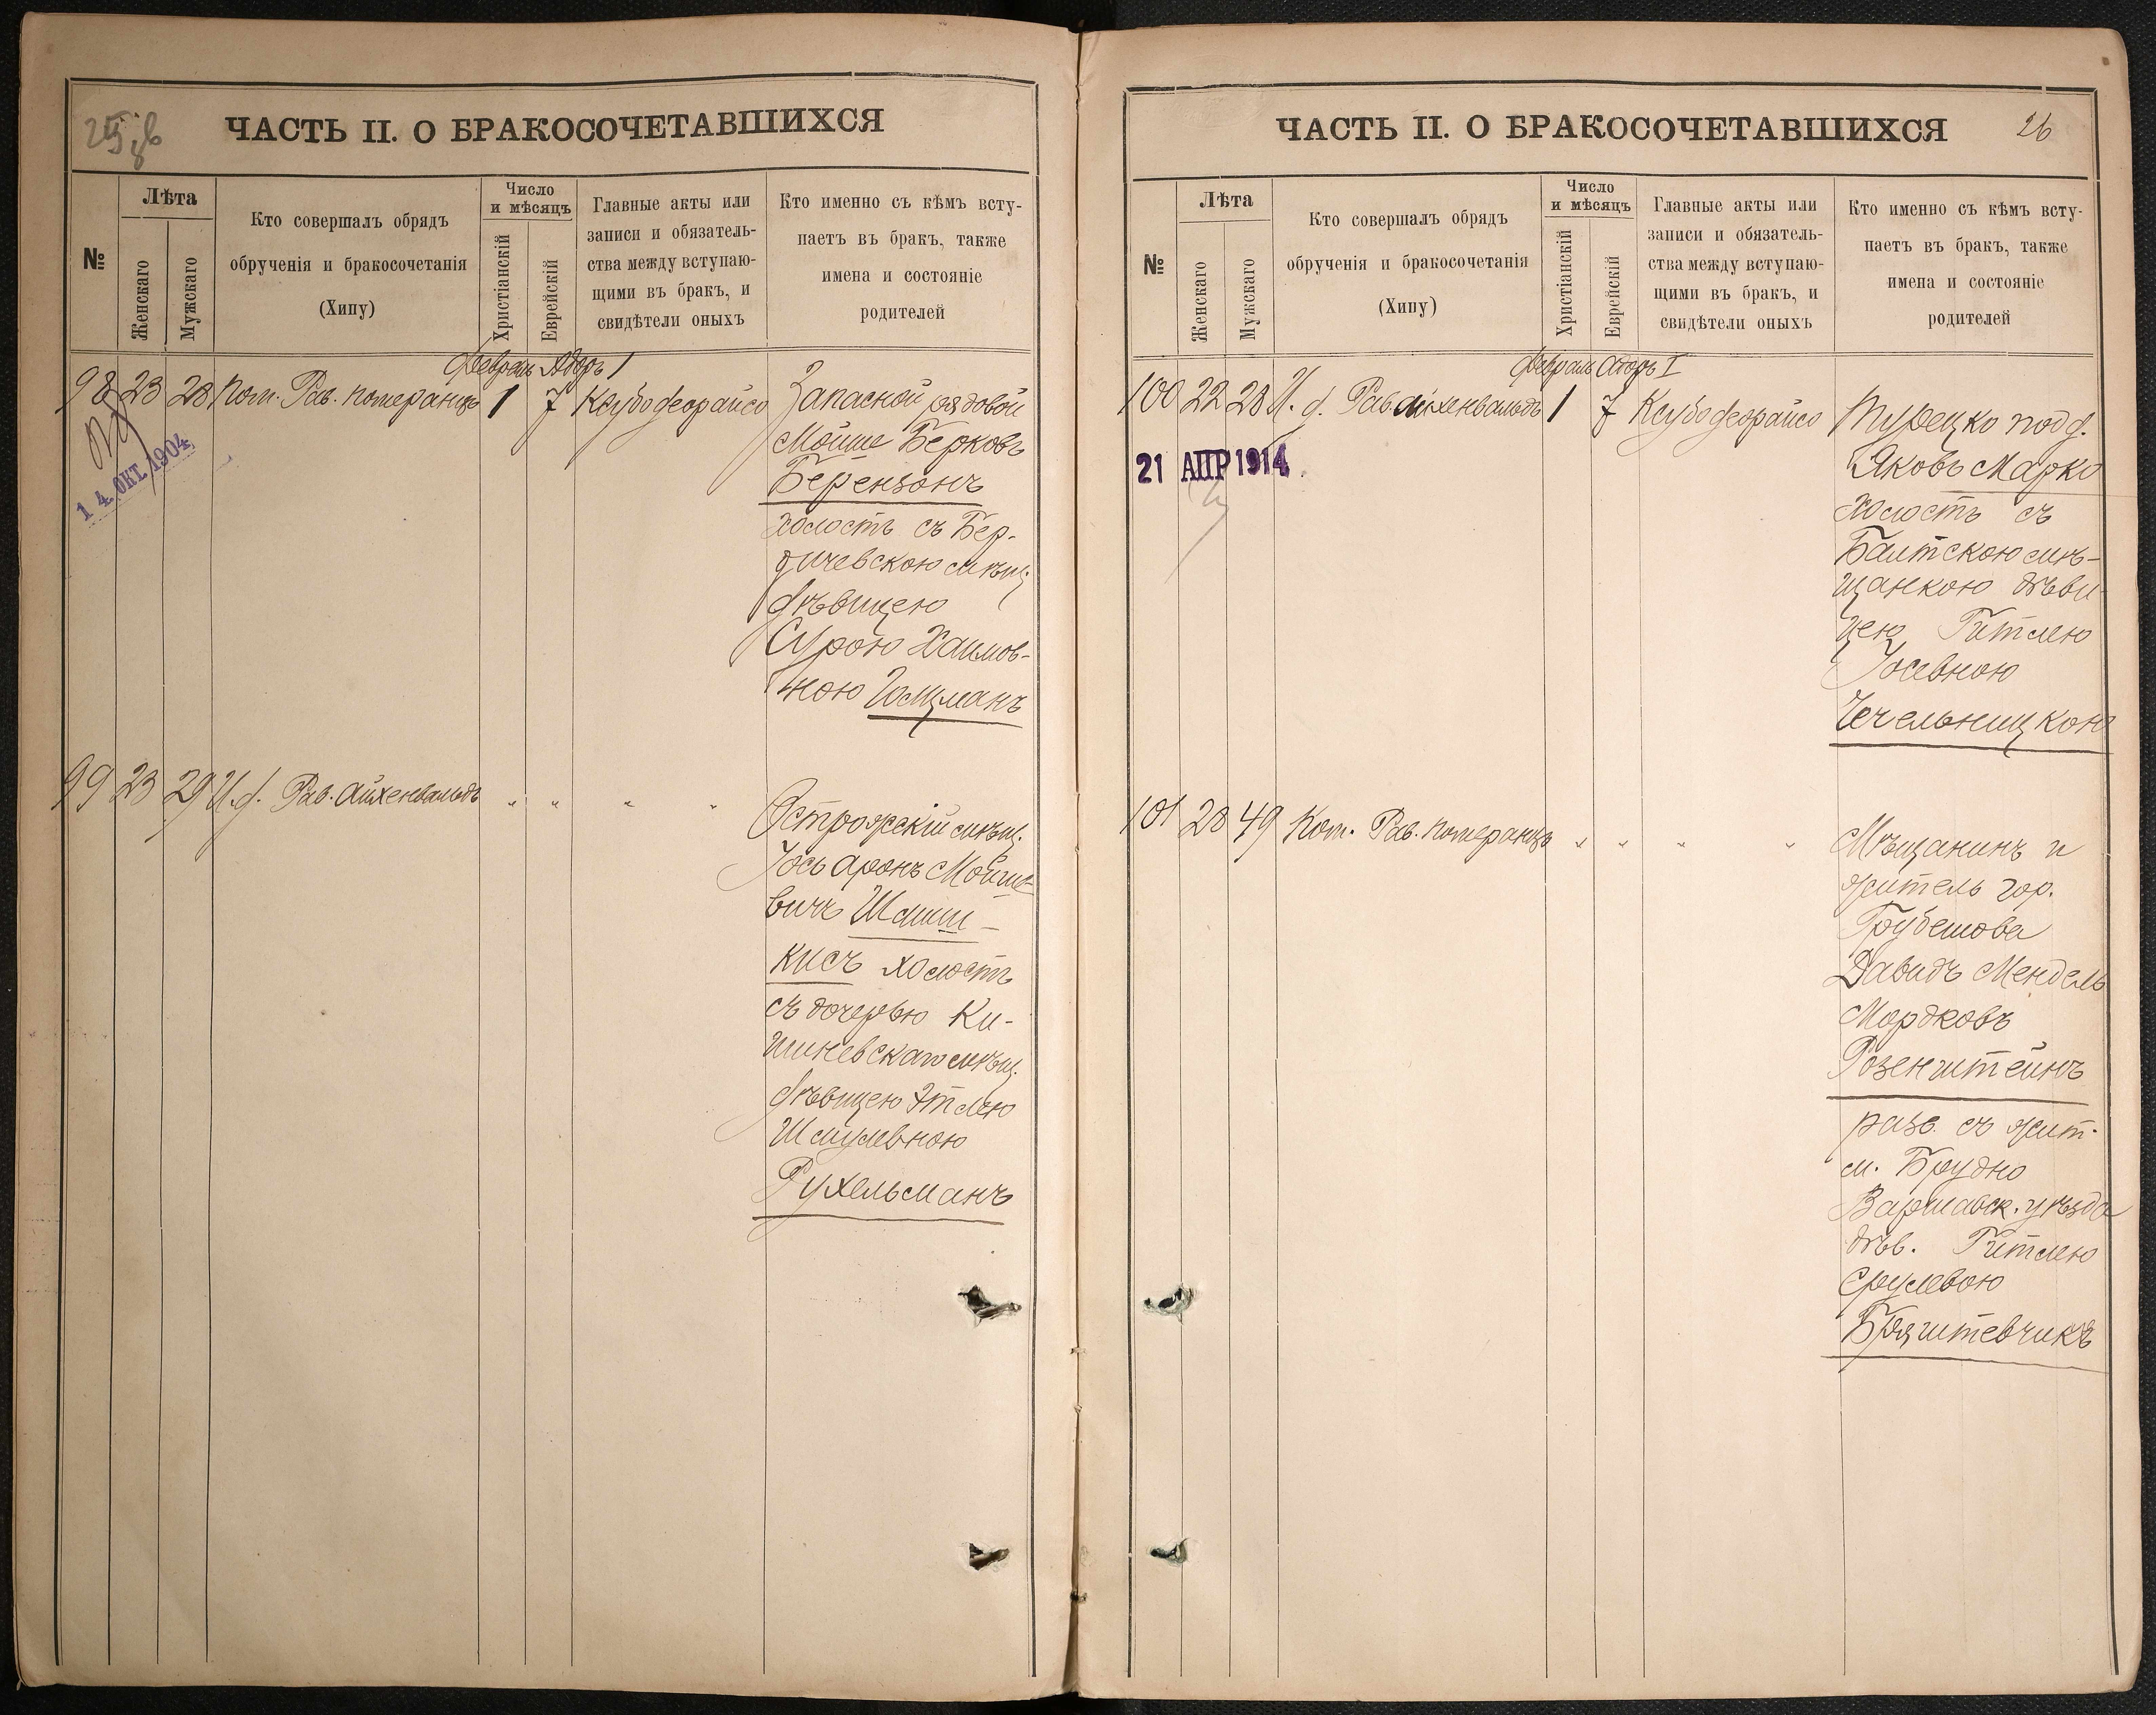 25 об
ЧАСТЬ II. О БРАКОСОЧЕТАВШИХСЯ
№
Лѣта
Женскаго
Мужскаго
Кто совершалъ обрядъ
обрученія и бракосочетанія
(Хипу)
Число
и мѣсяцъ
Христіанскій
Еврейскій
Главные акты или
записи и обязатель-
ства между вступаю-
щими въ бракъ, и
свидѣтели оныхъ
Кто именно съ кѣмъ всту-
паетъ въ бракъ, также
имена и состояніе
родителей
Февраль Адоръ I
98 23 28 Пом. Рав. Померанцъ 1 7 Ксубо деорайсо
Запасной рядовой
Мойше Берковъ
Берензонъ
холостъ съ Бер-
дичевскою мѣщ.
дѣвицею
Сурою Хаимов-
ною Гольцманъ
14 ОКТ. 1904
99 23 29 И. д. Рав. Айхенвальдъ " " " "
Острожскій мѣщ.
Іось Аронъ Мойше-
вичъ Шмиш-
кисъ холостъ
съ дочерью Ки-
шиневскаго мѣщ.
дѣвицею Этлею
Шмулевною
Рухельманъ
ЧАСТЬ II. О БРАКОСОЧЕТАВШИХСЯ
26
№
Лѣта
Женскаго
Мужскаго
Кто совершалъ обрядъ
обрученія и бракосочетанія
(Хипу)
Число
и мѣсяцъ
Христіанскій
Еврейскій
Главные акты или
записи и обязатель-
ства между вступаю-
щими въ бракъ, и
свидѣтели оныхъ
Кто именно съ кѣмъ всту-
паетъ въ бракъ, также
имена и состояніе
родителей
Февраль Адоръ I
100 22 28 И. д. Рав. Айхенвальдъ 1 7 Ксубо деорайсо
Турецко под д.
Яковъ Марко
холостъ съ
Балтскою мѣ-
щанкою дѣви-
цею Гитлею
Іосевною
Чечельницкою
21 АПР 1914
101 28 49 Пом. Рав. Померанцъ " " " "
Мѣщанинъ и
житель гор.
Грубешова
Давидъ Мендель
Мордковъ
Розенштейнъ
разв. съ жит.
м. Брудно
Варшавск. уѣзда
дѣв. Гитлею
Срулевою